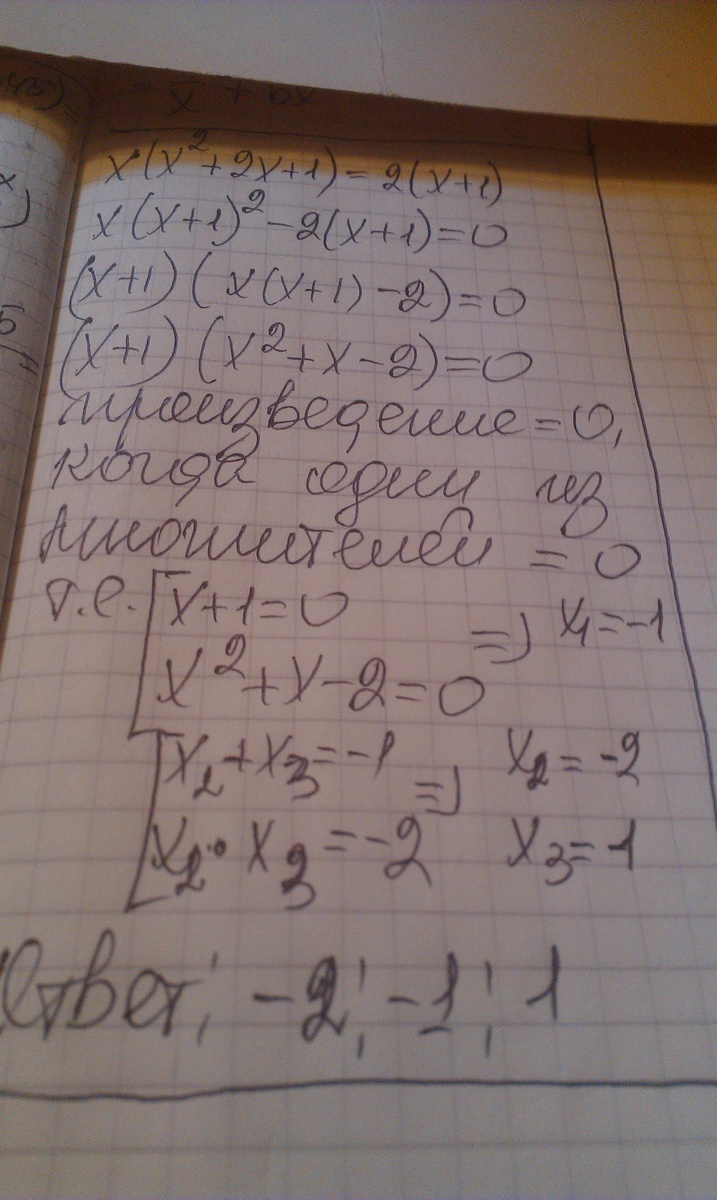 x(x²+2x+1)=2(x+1)
x(x+1)²-2(x+1)=0
(x+1)(x(x+1)-2)=0
(x+1)(x²+x-2)=0
произведение=0,
когда один из
множителей = 0
т.е. [x+1=0 => x₁=-1
x²+x-2=0
[x₂+x₃=-1 => x₂=-2
x₂·x₃=-2 x₃=1
Ответ: -2; -1; 1